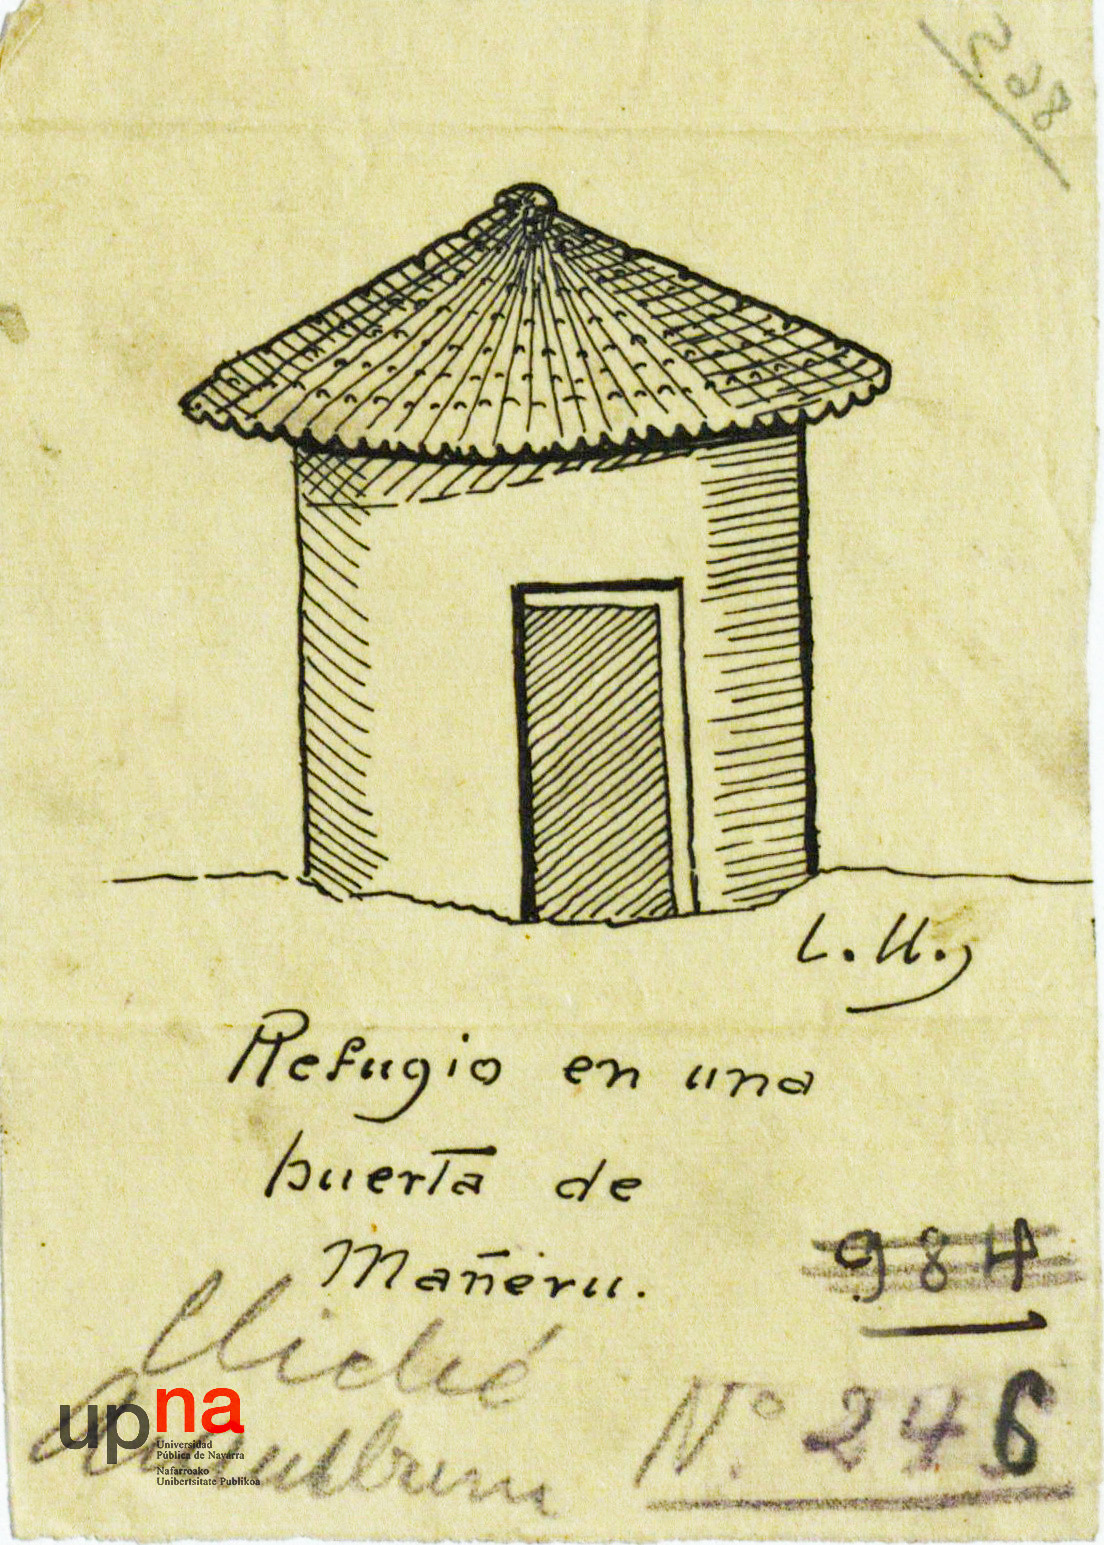 568
L. U.
Refugio en una
huerta de
Mañeru.
984
Cliché
Nº 246
upna
Universidad
Pública de Navarra
Nafarroako
Unibertsitate Publikoa